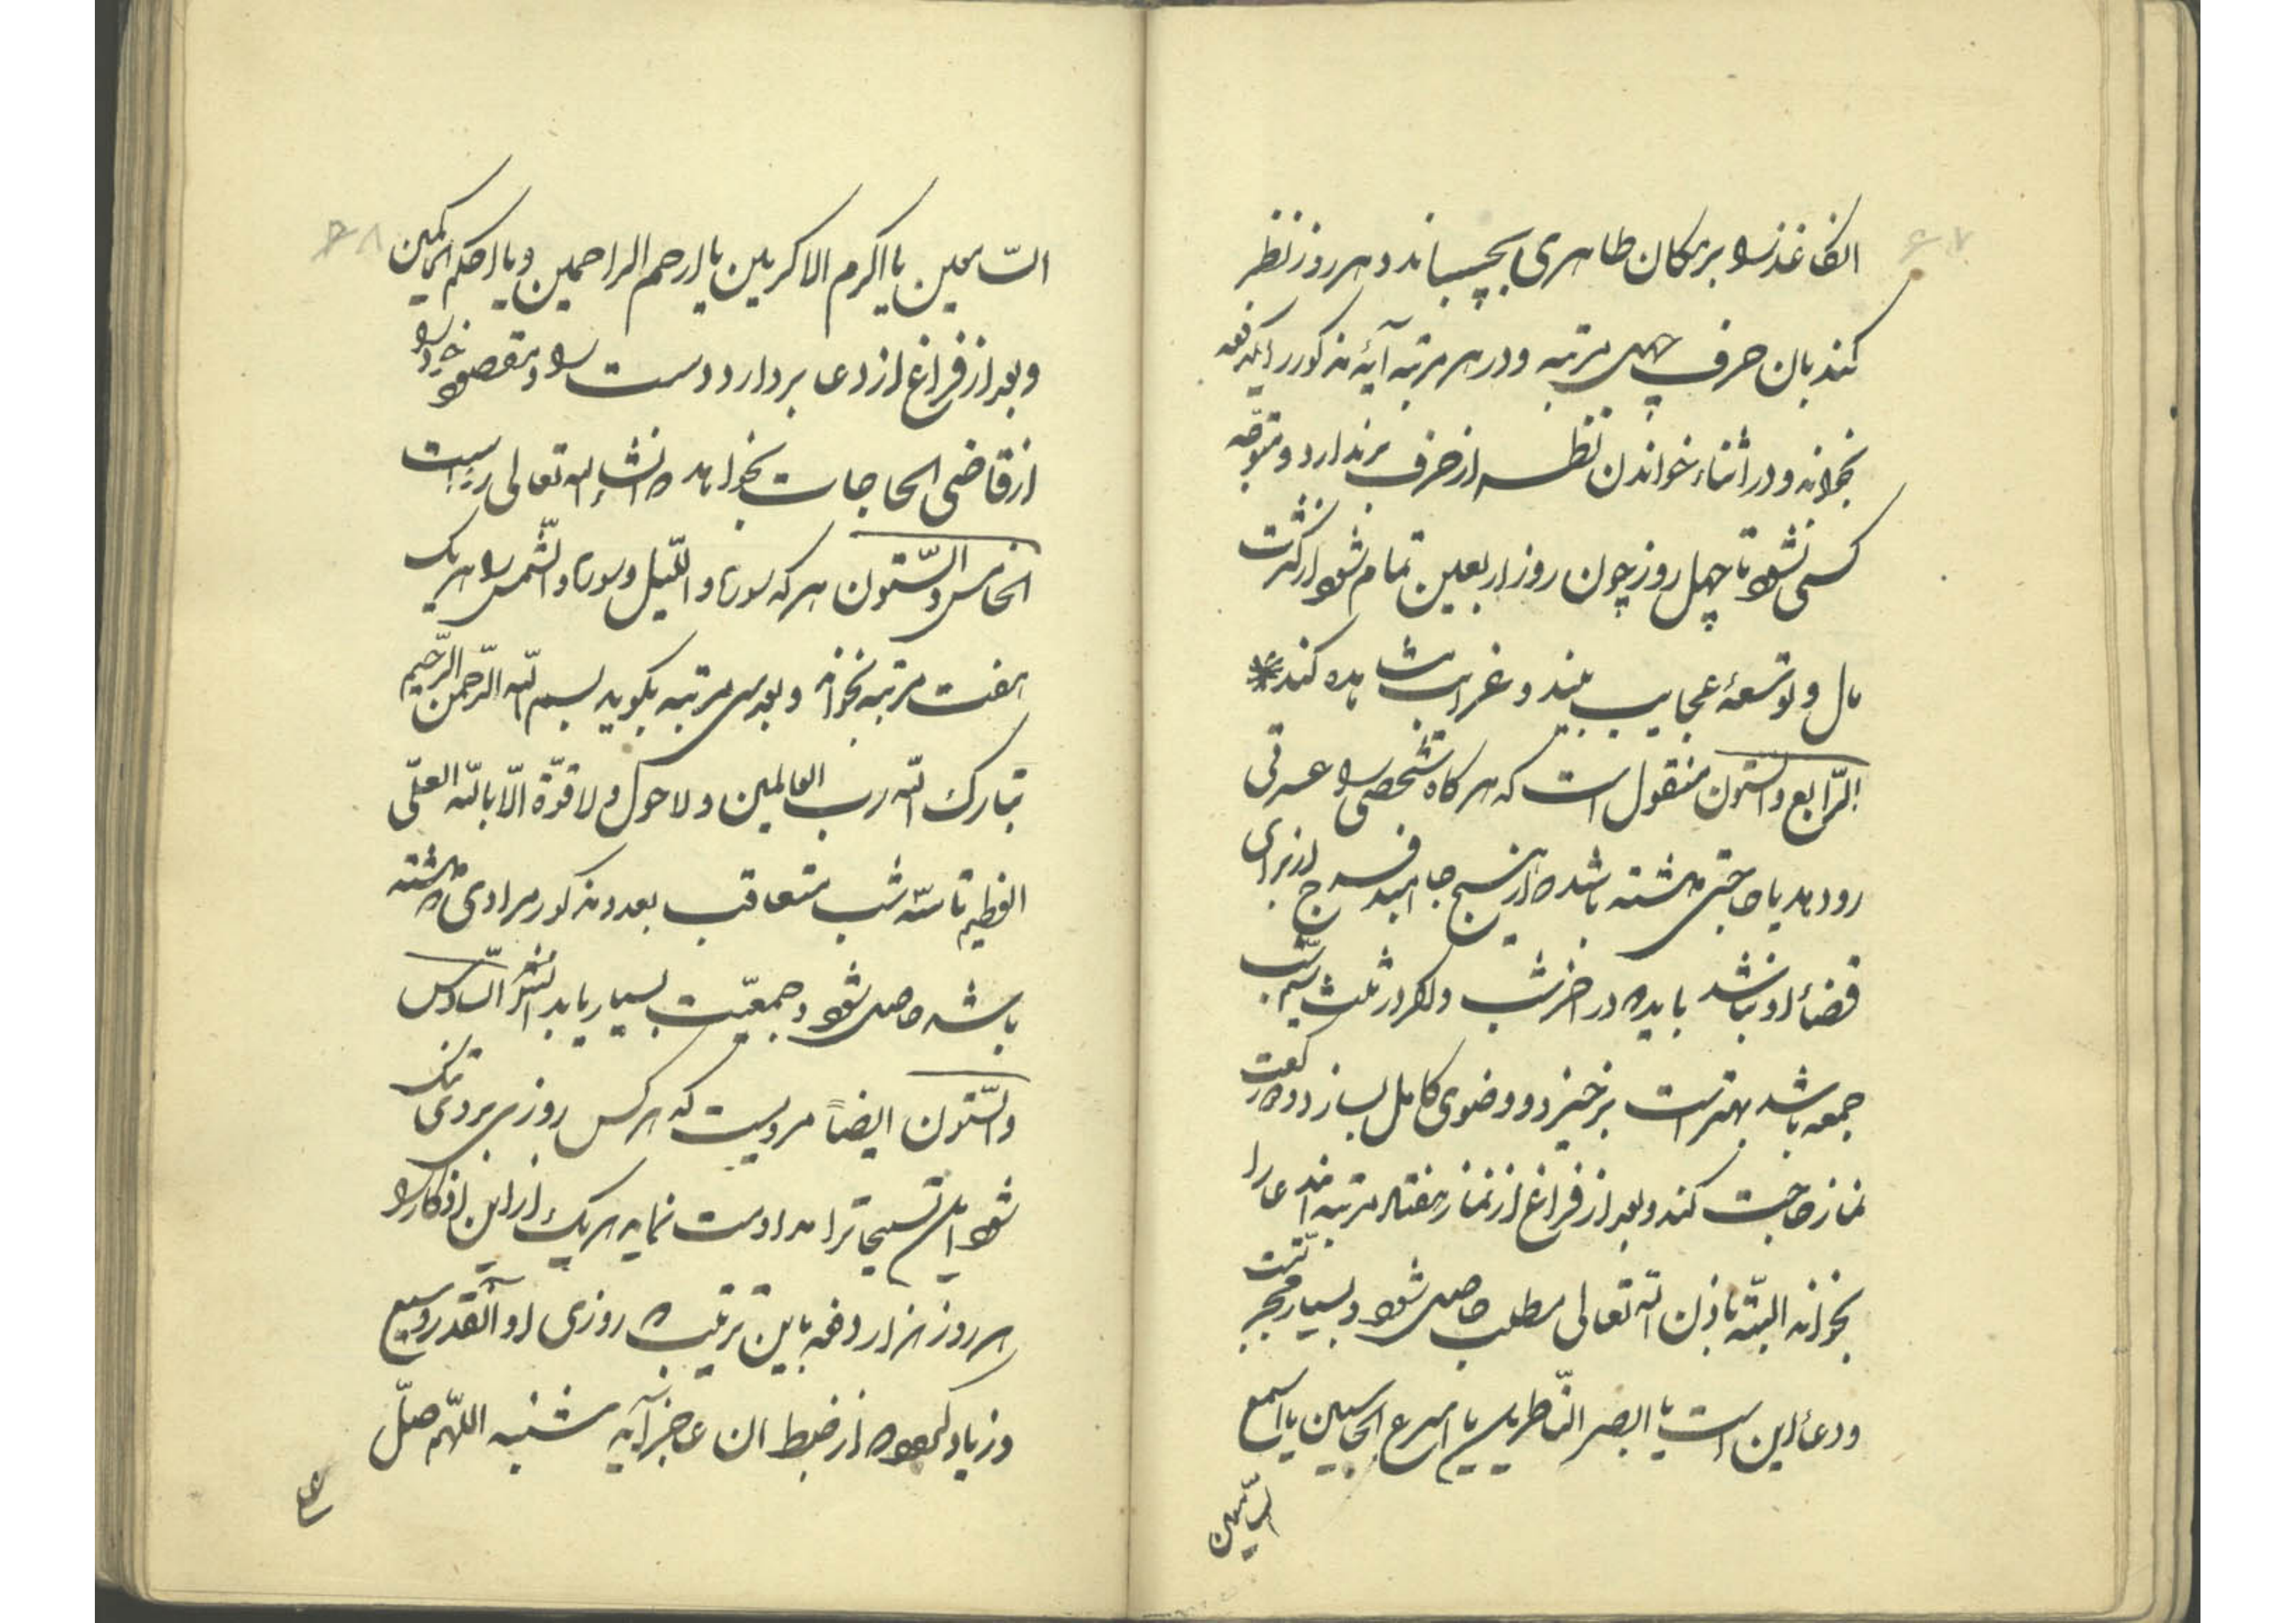 ۶۷
انکاغذ را بر مکان طاهری بچسباند و هر روز نظر
کند بان حرف چهل مرتبه و در هر مرتبه آیهٔ مذکور را یکدفعه
بخواند و در اثناء خواندن نظر از حرف برندارد و متوجّه
کسی نشود تا چهل روز چون روز اربعین تمام شود از کثرت
مال و توسعهٔ عجایب بیند و غرایب مشاهده کند
الرّابع والستون منقول است که هر کاه شخصی را عسرتی
رو دهد یا حاجتی داشته باشد که از هیچ جا امید فرج از برای
قضاء او نباشد باید که در اخر شب و اکر در ثلث شب
جمعه باشد بهتر است برخیزد و وضوی کامل بسازد و دو رکعت
نماز حاجت کند و بعد از فراغ از نماز هفتاد مرتبه این دعا را
بخواند البتّه باذن الله تعالی مطلب حاصل شود و بسیار مجرّبست
و دعا این است یا ابصر النّاظرین یا اسرع الحاسبین یا اسمع
السّامعین
۶۸
السّامعین یا اکرم الاکرمین یا ارحم الراحمین و یا احکم الحاکمین
و بعد از فراغ از دعا بردارد دست را و مقصود خود را
از قاضی الحاجات بخواهد که انشاء الله تعالی رواست
الخامس والسّتون هر که سوره واللّیل و سوره والشّمس را هر یک
هفت مرتبه بخواند و بعد سی مرتبه بکوید بسم الله الرّحمن الرّحیم
تبارک الله رب العالمین ولا حول ولا قوّة الّا بالله العلّی
العظیم تا سّه شب متعاقب بعدد مذکور مرادی که داشته
باشد حاصل شود و جمعیّت بسیار یابد انشاء السّادس
والسّتون ایضاً مرویست که هر کس روزی بر وی تنک
شود این تسبیحاترا مداومت نماید هر یک از این اذکار را
هر روز هزار دفعه باین ترتیب که روزی او آنقدر وسیع
و زیاد کردد که از ضبط ان عاجز آید شنبه اللّهم صلّ
علی